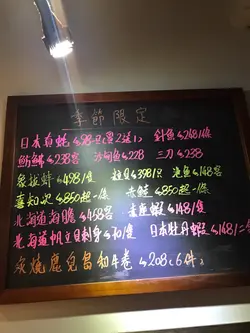 季節限定
日本真蚝$98只(買2送1) 針魚$248/條
魴鮄$238客 沙甸魚$228 三刀$238
象拔蚌$498/條 牡丹$398只 池魚$148客
喜知次$850起一條 赤鯥$850起一條
北海道海膽$488客 赤座蝦$148/只
北海道帆立貝刺身$70/只 日本牡丹蝦$148/二
炭燒鹿兒島和牛卷$208(6件)